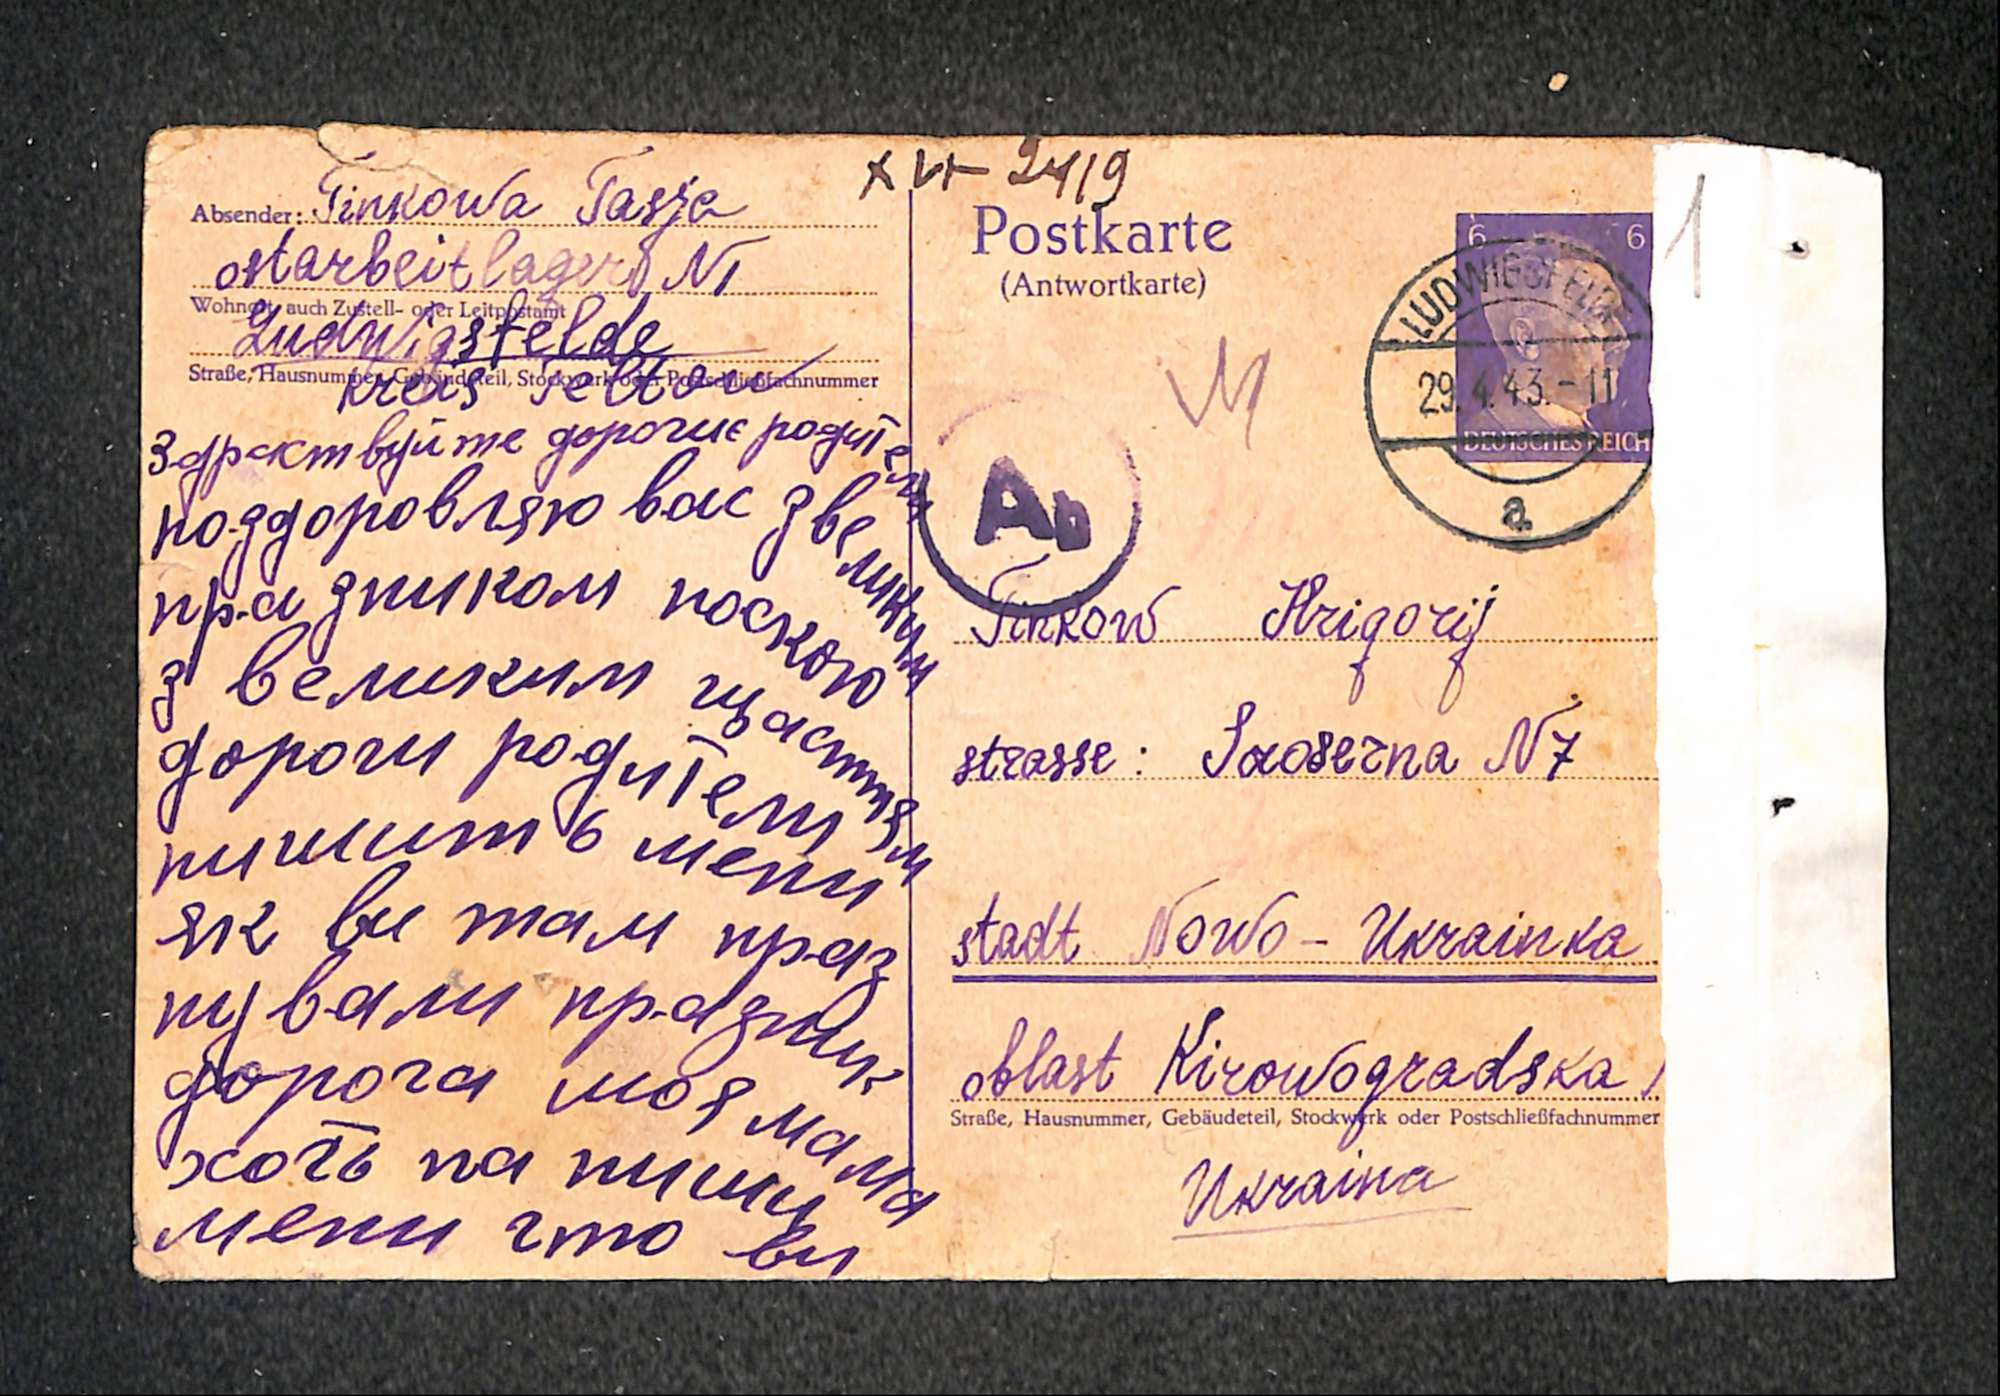 Absender: Tinkowa Tasja
ostarbeitlager N1
Wohnort, auch Zustell- oder Leitpostamt
Ludwigsfelde
Straße, Hausnummer, Gebäudeteil, Stockwerk oder Postschließfachnummer
Kreis Teltow
Здраствуйте дорогиє родители
поздоровляю вас з великим
празником паскою
з великим щастям
дороги родители
пишить мени
як ви там праз
нували празник
дорога моя мама
хоть на пиши
мени что ви
24/9
Postkarte
(Antwortkarte)
6 6
LUDWIGSFELDE
29.4.43.-11
DEUTSCHES REICH
a
Ab
1
Tinkow Hrigorij
strasse: N7
stadt Nowo-Ukrainka
oblast Kirowogradska
Straße, Hausnummer, Gebäudeteil, Stockwerk oder Postschließfachnummer
Ukraina